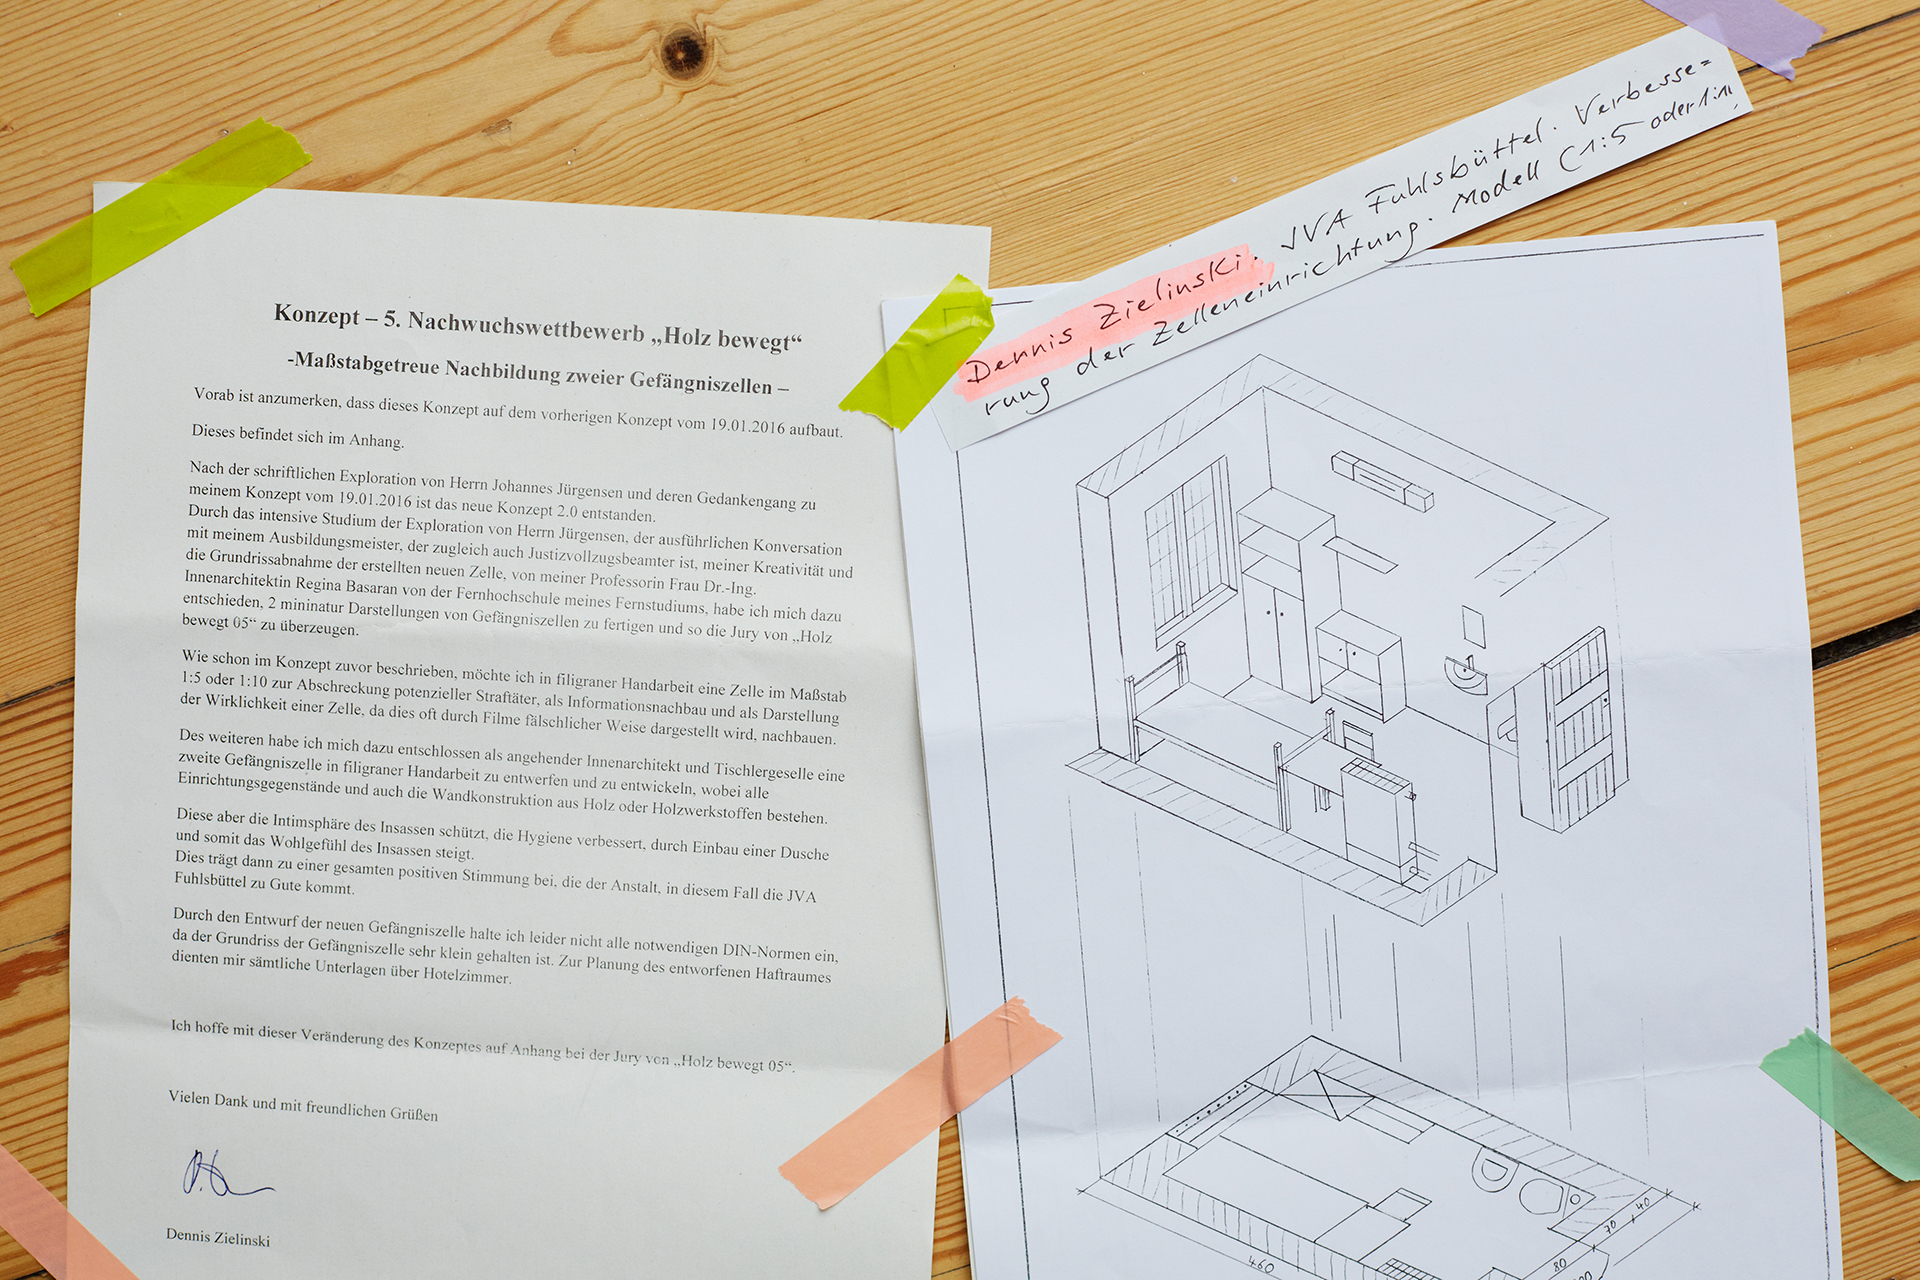 Konzept – 5. Nachwuchswettbewerb „Holz bewegt“
-Maßstabgetreue Nachbildung zweier Gefängniszellen –
Vorab ist anzumerken, dass dieses Konzept auf dem vorherigen Konzept vom 19.01.2016 aufbaut.
Dieses befindet sich im Anhang.
Nach der schriftlichen Exploration von Herrn Johannes Jürgensen und deren Gedankengang zu
meinem Konzept vom 19.01.2016 ist das neue Konzept 2.0 entstanden.
Durch das intensive Studium der Exploration von Herrn Jürgensen, der ausführlichen Konversation
mit meinem Ausbildungsmeister, der zugleich auch Justizvollzugsbeamter ist, meiner Kreativität und
die Grundrissabnahme der erstellten neuen Zelle, von meiner Professorin Frau Dr.-Ing.
Innenarchitektin Regina Basaran von der Fernhochschule meines Fernstudiums, habe ich mich dazu
entschieden, 2 mininatur Darstellungen von Gefängniszellen zu fertigen und so die Jury von „Holz
bewegt 05“ zu überzeugen.
Wie schon im Konzept zuvor beschrieben, möchte ich in filigraner Handarbeit eine Zelle im Maßstab
1:5 oder 1:10 zur Abschreckung potenzieller Straftäter, als Informationsnachbau und als Darstellung
der Wirklichkeit einer Zelle, da dies oft durch Filme fälschlicher Weise dargestellt wird, nachbauen.
Des weiteren habe ich mich dazu entschlossen als angehender Innenarchitekt und Tischlergeselle eine
zweite Gefängniszelle in filigraner Handarbeit zu entwerfen und zu entwickeln, wobei alle
Einrichtungsgegenstände und auch die Wandkonstruktion aus Holz oder Holzwerkstoffen bestehen.
Diese aber die Intimsphäre des Insassen schützt, die Hygiene verbessert, durch Einbau einer Dusche
und somit das Wohlgefühl des Insassen steigt.
Dies trägt dann zu einer gesamten positiven Stimmung bei, die der Anstalt, in diesem Fall die JVA
Fuhlsbüttel zu Gute kommt.
Durch den Entwurf der neuen Gefängniszelle halte ich leider nicht alle notwendigen DIN-Normen ein,
da der Grundriss der Gefängniszelle sehr klein gehalten ist. Zur Planung des entworfenen Haftraumes
dienten mir sämtliche Unterlagen über Hotelzimmer.
Ich hoffe mit dieser Veränderung des Konzeptes auf Anhang bei der Jury von „Holz bewegt 05“.
Vielen Dank und mit freundlichen Grüßen
Dennis Zielinski
Dennis Zielinski. JVA Fuhlsbüttel. Verbesse=
rung der Zelleneinrichtung. Modell (1:5 oder
460
80
70
40